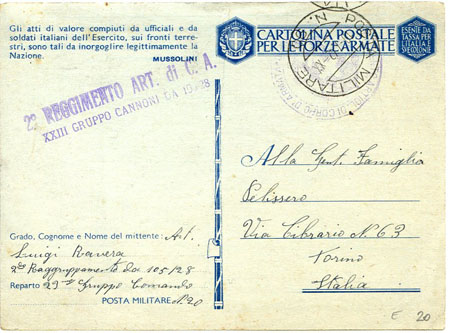 Gli atti di valore compiuti da ufficiali e da
soldati italiani dell'Esercito, sui fronti terre-
stri, sono tali da inorgoglire legittimamente la
Nazione.
MUSSOLINI
CARTOLINA POSTALE
PER LE FORZE ARMATE
ESENTE DA
TASSA PER
L'ITALIA E
LE COLONIE
POSTA MILITARE N.
2º REGGIMENTO ART. di C. A.
XXIII GRUPPO CANNONI DA 105/28
Alla Gent. Famiglia
Pelissero
Via Cibrario N. 63
Torino
Italia
Grado, Cognome e Nome del mittente: Art.
Luigi Ravera
2º Raggruppamento da 105/28
Reparto 23º Gruppo Comando
POSTA MILITARE N. 20
E 20